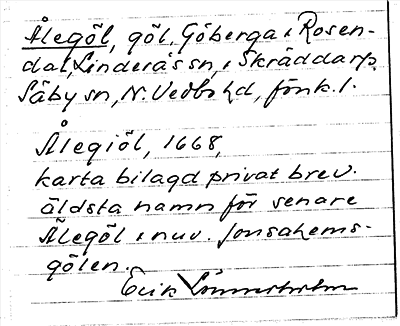 Ålegöl, göl, Göberga o Rosen-
dal, Linderås sn, o Skräddarp
Säby sn, N. Vedbo hd, Jönk. l.
Ålegiöl, 1668,
karta bilagd privat brev.
äldsta namn för senare
Ålegöl o nuv. Jonsahems-
gölen.
Erik Lönnerholm